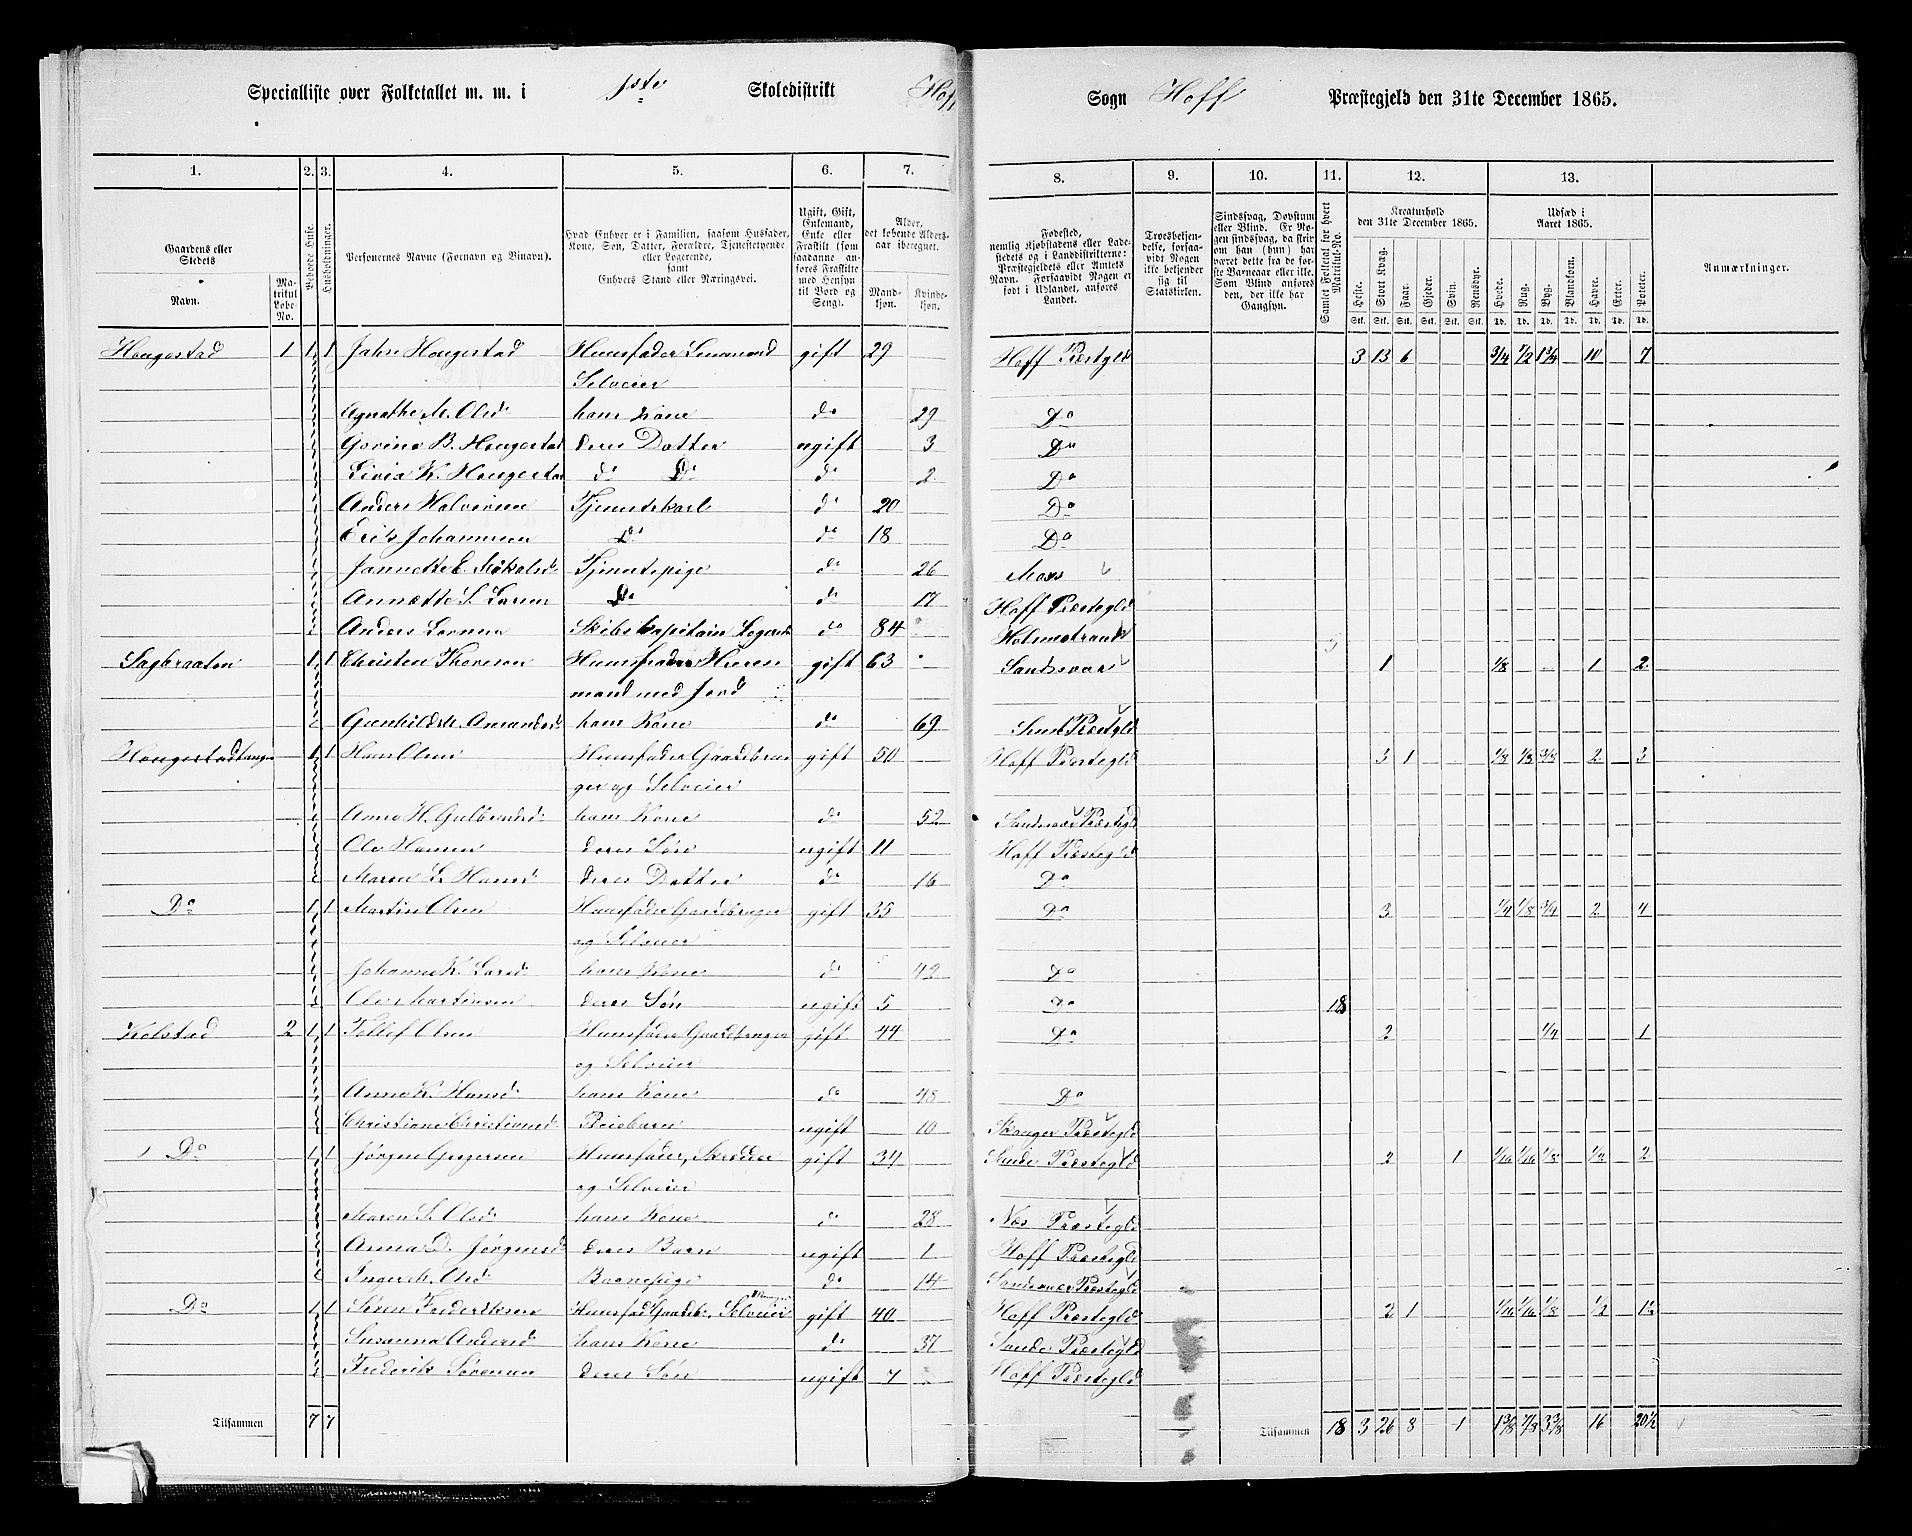 Specialliste over Folketallet m. m. i 1ste Skoledistrikt Hoff Sogn Hoff Præstegjeld den 31te December 1865.
1. 2. 3. 4. 5. 6. 7. 8. 9. 10. 11. 12. 13.
Gaardens eller Stedets
Navn.
Matrikul Løbe-No.
Beboede Huse.
Husholdninger.
Personernes Navne (Fornavn og Binavn).
Hvad Enhver er i Familien, saasom Husfader, Kone, Søn, Datter, Forældre, Tjenestetyende eller Logerende, samt Enhvers Stand eller Næringsvei.
Ugift, Gift, Enkemand, Enke eller Fraskilt (som saadanne anføres Fraskilte med Hensyn til Bord og Seng).
Alder, det løbende Aldersaar iberegnet.
Mandkjøn. Kvindekjøn.
Fødested, nemlig Kjøbstadens eller Ladestedets og i Landdistrikterne: Præstegjeldets eller Amtets Navn. Forsaavidt Nogen er født i Udlandet, anføres Landet.
Troesbekjendelse, forsaavidt Nogen ikke bekjender sig til Statskirken.
Sindssvag, Døvstum eller Blind. Er Nogen sindssvag, da skriv om han (hun) har været dette fra de første Barneaar eller ikke. Som Blind anføres den, der ikke har Gangsyn.
Samlet Folketal for hvert Matrikul-No.
Kreaturhold den 31te December 1865.
Heste. Stort Kvæg. Faar. Gjeder. Svin. Rensdyr.
Udsæd i Aaret 1865.
Hvede. Rug. Byg. Blandkorn. Havre. Erter. Poteter.
Stk. Stk. Stk. Stk. Stk. Stk. Td. Td. Td. Td. Td. Td. Td.
Anmærkninger.
Hougestad 1 1 1 John Hougestad Huusfader gift 29 Hoff Præstgld 3 13 6 3/4 1/2 1 3/4 10 7
Selveier
Agnethe M. Olsd. hans Kone do 29 Do
B. Hougestad deres Datter ugift 3 Do
K. Hougestad do Do do 2 Do
Anders Halvorsen Tjenestekarl do 20 Do
Johannesen Do do 18 Do
Tjenestepige do 26 Moss
Do do 17 Hoff Præstegld
Anders Skibskapitain Logerende do 84 Holmestrand
Sagbraaten 1 1 Christen Thoresen Huusfader gift 63 Sandsvær 1 1/8 1 2
mand med Jord
hans Kone do 69 Præstgld
1 1 Hans Olsen Huusfader Gaardbru gift 50 Hoff Præstegld 3 1 1/8 1/8 3/8 2 3
ger og Selveier
Anne H. Gulbrandsd. hans Kone do 52 Sandsvær Præstegld
Ole Hansen deres Søn ugift 11 Hoff Præstegld
Maren L. Hansd. deres Datter do 16 Do
Do 1 1 Martin Olsen Huusfader Gaardbruger gift 35 Do 3 1/4 1/8 3/4 2 4
og Selveier
Johanne K. Larsd. hans Kone do 42 Do
Ole Martinsen deres Søn ugift 5 Do 18
Kolstad 2 1 1 Tollef Olsen Huusfader Gaardbruger gift 44 Do 2 1/4 1
og Selveier
Anne K. Hansd. hans Kone do 48 Do
Christiane Christiansd. Pleiebarn ugift 10 Præstegld
Do 1 1 Jørgen Gregersen Huusfader, Skrædder gift 34 Sande Præstegld 2 1 1/16 1/16 1/8 1/2 2
og Selveier
Maren S. Olsd. hans Kone do 28 Næs Præstegld
Anna D. Jørgensd. deres Barn ugift 1 Hoff Præstegld
Inger M. Olsd. Barnepige do 14 Sandsvær Præstegld
Do 1 1 Søren Frederiksen Huusfad. Gaardb. Selveier gift 40 Hoff Præstegld 2 1 1/16 1/16 1/8 1/2 1 1/2
Susanna Andersd. hans Kone do 37 Sande Præstegld
Frederik Sørensen deres Søn ugift 7 Hoff Præstegld
Tilsammen 7 7 Tilsammen 18 3 26 8 1 1 3/8 7/8 3 3/8 16 20 1/2